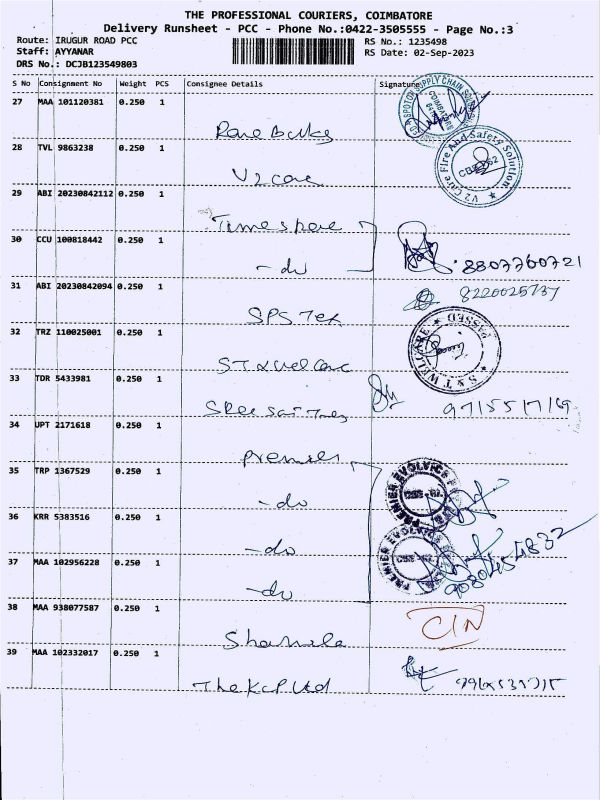 THE PROFESSIONAL COURIERS, COIMBATORE
Delivery Runsheet - PCC - Phone No.:0422-3505555 - Page No.:3
Route: IRUGUR ROAD PCC
RS No.: 1235498
Staff: AYYANAR
RS Date: 02-Sep-2023
DRS No.: DCJB123549803
S No Consignment No Weight PCS Consignee Details Signature
27 MAA 101120381 0.250 1
28 TVL 9863238 0.250 1
V2 care
V2 Care Fire And Safety Solution
29 ABI 20230842112 0.250 1
30 CCU 100818442 0.250 1
- do
8807760721
31 ABI 20230842094 0.250 1
SPS Tex
32 TRZ 110025001 0.250 1
S.T. Wel Care
S & T WELLCARE PASSED
33 TDR 5433981 0.250 1
Sree Sai
34 UPT 2171618 0.250 1
Premier
35 TRP 1367529 0.250 1
- do
PREMIER EVOLVICS
36 KRR 5383516 0.250 1
- do
PREMIER EVOLVICS
37 MAA 102956228 0.250 1
- do
9080454832
38 MAA 938077587 0.250 1
Sharmila
CIN
39 MAA 102332017 0.250 1
The KCP Ltd